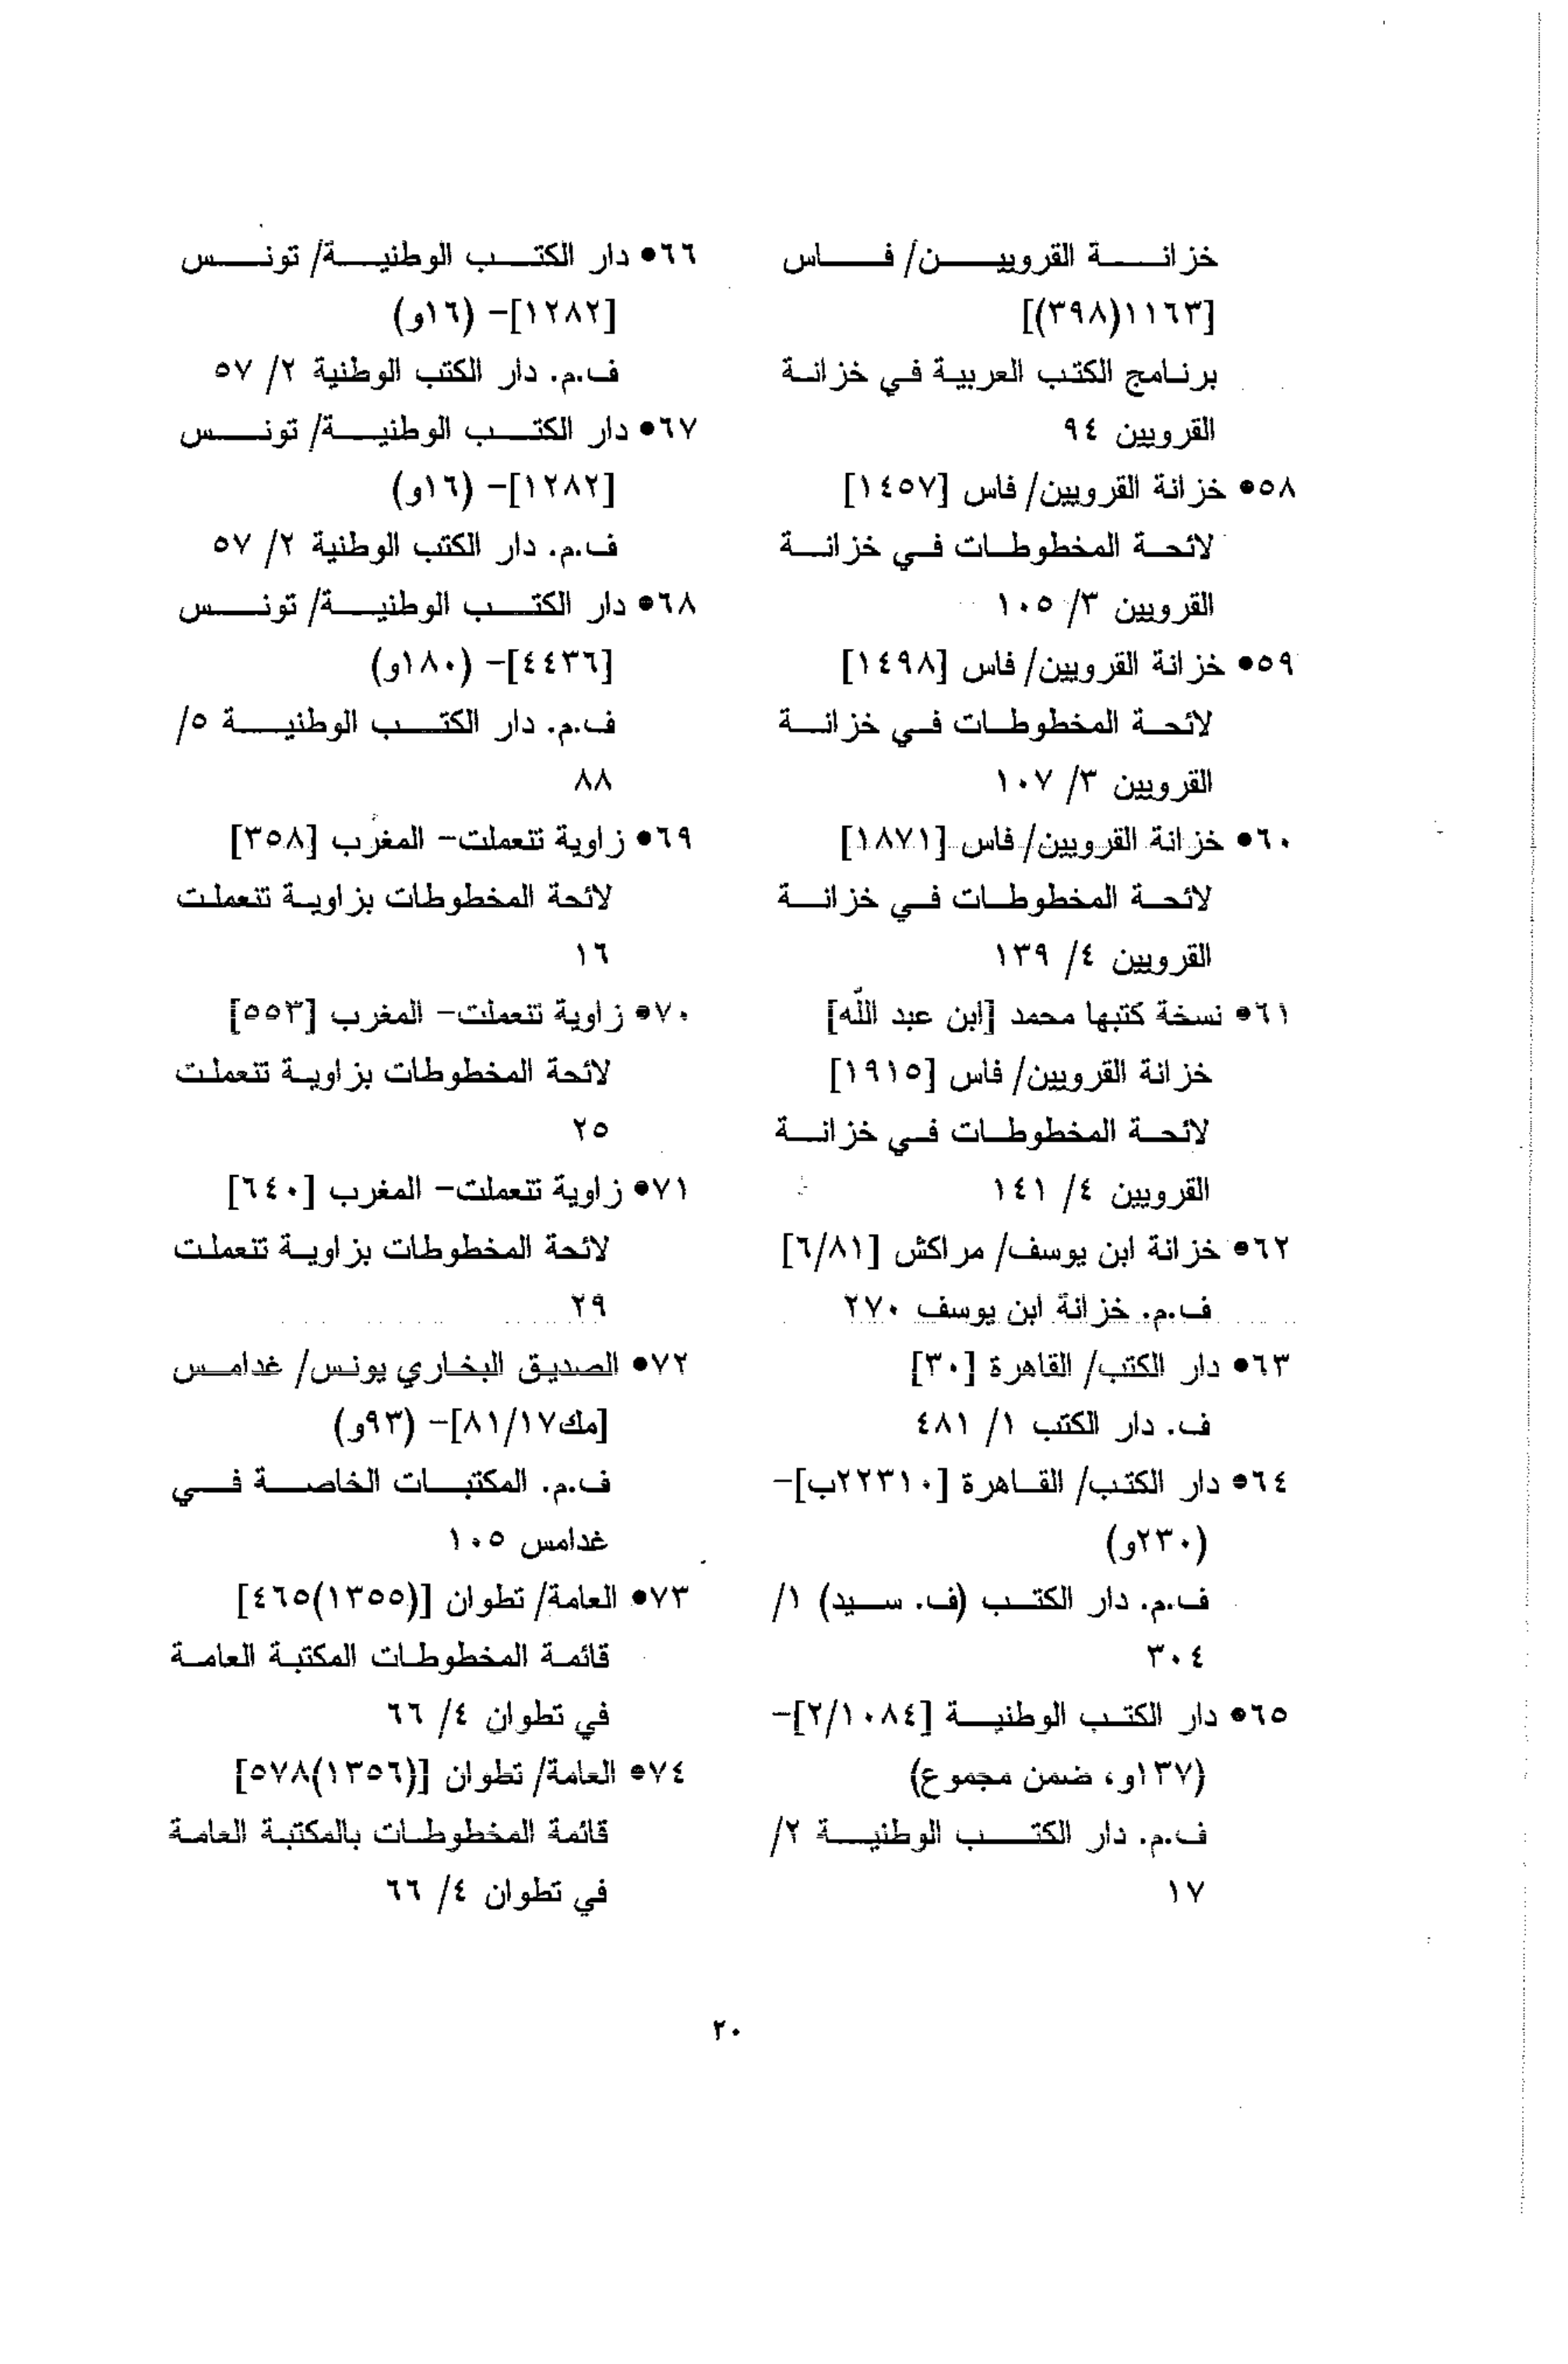 خزانة القرويين/ فاس
[١١٦٣(٣٩٨)]
برنامج الكتب العربية في خزانة
القرويين ٩٤
٥٨• خزانة القرويين/ فاس [١٤٥٧]
لائحة المخطوطات في خزانة
القرويين ٣/ ١٠٥
٥٩• خزانة القرويين/ فاس [١٤٩٨]
لائحة المخطوطات في خزانة
القرويين ٣/ ١٠٧
٦٠• خزانة القرويين/ فاس [١٨٧١]
لائحة المخطوطات في خزانة
القرويين ٤/ ١٣٩
٦١• نسخة كتبها محمد [ابن عبد الله]
خزانة القرويين/ فاس [١٩١٥]
لائحة المخطوطات في خزانة
القرويين ٤/ ١٤١
٦٢• خزانة ابن يوسف/ مراكش [٦/٨١]
ف.م. خزانة ابن يوسف ٢٧٠
٦٣• دار الكتب/ القاهرة [٣٠]
ف. دار الكتب ١/ ٤٨١
٦٤• دار الكتب/ القاهرة [٢٢٣١٠ب]-
(٢٣٠و)
ف.م. دار الكتب (ف. سيد) ١/
٣٠٤
٦٥• دار الكتب الوطنية [٢/١٠٨٤]-
(١٣٧و، ضمن مجموع)
ف.م. دار الكتب الوطنية ٢/
١٧
٦٦• دار الكتب الوطنية/ تونس
[١٢٨٢]- (١٦و)
ف.م. دار الكتب الوطنية ٢/ ٥٧
٦٧• دار الكتب الوطنية/ تونس
[١٢٨٢]- (١٦و)
ف.م. دار الكتب الوطنية ٢/ ٥٧
٦٨• دار الكتب الوطنية/ تونس
[٤٤٣٦]- (١٨٠و)
ف.م. دار الكتب الوطنية ٥/
٨٨
٦٩• زاوية تنعملت- المغرب [٣٥٨]
لائحة المخطوطات بزاوية تنعملت
١٦
٧٠• زاوية تنعملت- المغرب [٥٥٣]
لائحة المخطوطات بزاوية تنعملت
٢٥
٧١• زاوية تنعملت- المغرب [٦٤٠]
لائحة المخطوطات بزاوية تنعملت
٢٩
٧٢• الصديق البخاري يونس/ غدامس
[مك٨١/١٧]- (٩٣و)
ف.م. المكتبات الخاصة في
غدامس ١٠٥
٧٣• العامة/ تطوان [(١٣٥٥)٤٦٥]
قائمة المخطوطات المكتبة العامة
في تطوان ٤/ ٦٦
٧٤• العامة/ تطوان [(١٣٥٦)٥٧٨]
قائمة المخطوطات بالمكتبة العامة
في تطوان ٤/ ٦٦
٢٠